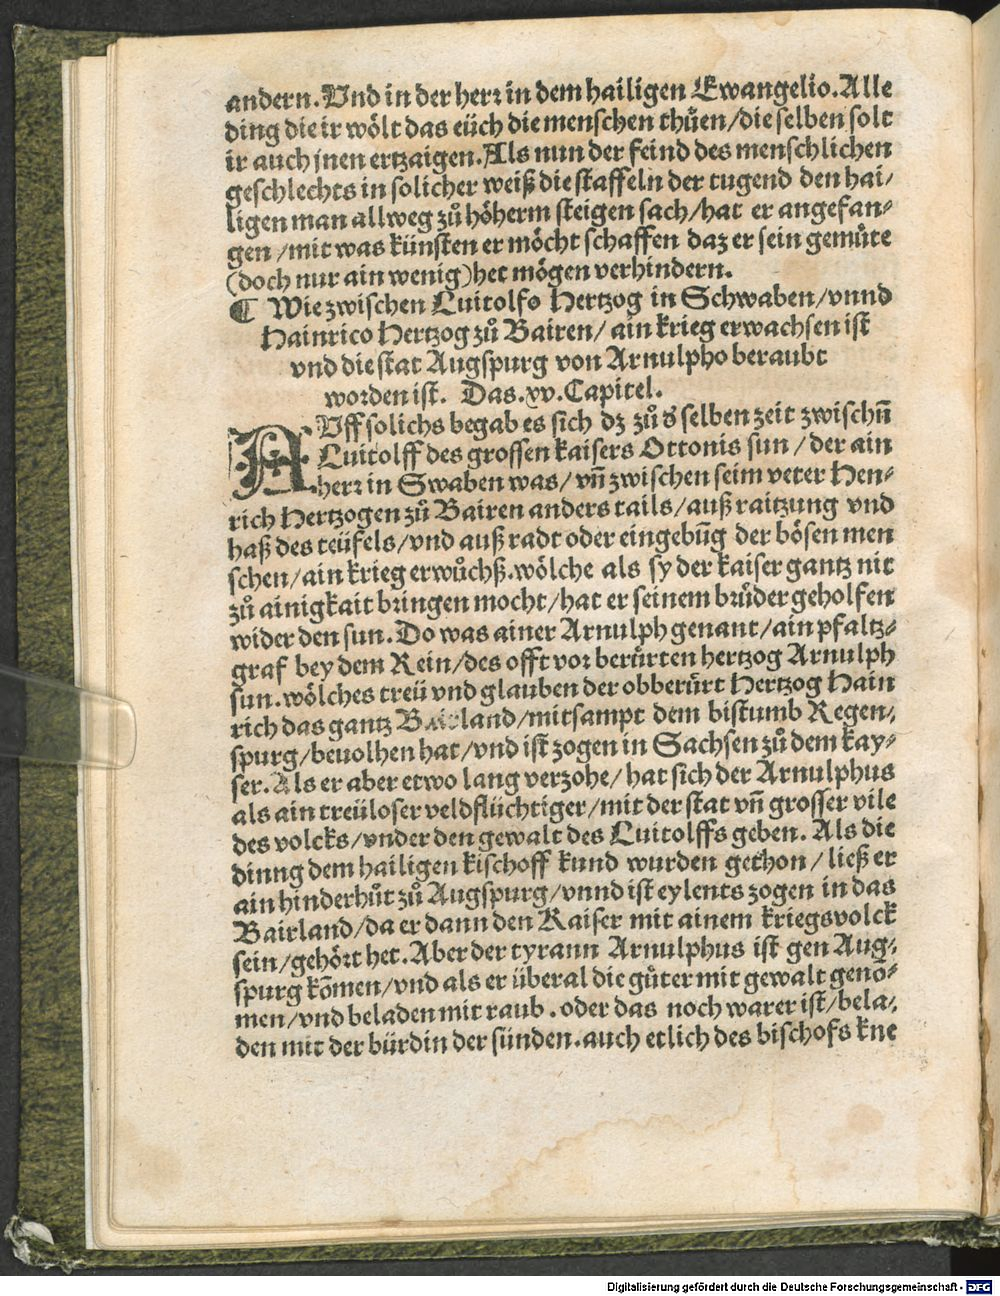 andern. Vnd in der herꝛ in dem hailigen Ewangelio. Alle
ding die ir wölt das eüch die menschen thuͤen/die selben solt
ir auch jnen ertzaigen. Als nun der feind des menschlichen
geschlechts in solicher weiß die staffeln der tugend den hai/
ligen man allweg zuͦ höherm steigen sach/hat er angefan⸗
gen/mit was künsten er möcht schaffen daz er sein gemuͤte
(doch nur ain wenig)het mögen verhindern.
¶ Wie zwischen Luitolfo Hertzog in Schwaben/vnnd
Hainrico Hertzog zuͦ Bairen/ain krieg erwachsen ist
vnd die stat Augspurg von Arnulpho beraubt
worden ist. Das.xv.Capitel.
AVff solichs begab es sich dz zuͦ ď selben zeit zwischñ
Luitolff des grossen kaisers Ottonis sun/der ain
herꝛ in Swaben was/vñ zwischen seim veter Hen⸗
rich Hertzogen zuͦ Bairen anders tails/auß raitzung vnd
haß des teüfels/vnd auß radt oder eingebūg der bösen men
schen/ain krieg erwuͦchß. wölche als sy der kaiser gantz nit
zuͦ ainigkait bringen mocht/hat er seinem bruͤder geholfen
wider den sun. Do was ainer Arnulph genant/ain pfaltz⸗
graf bey dem Rein/des offt vor beruͤrten hertzog Arnulph
sun. wölches treü vnd glauben der obberuͤrt Hertzog Hain
rich das gantz Bairland/mitsampt dem bistumb Regen/
spurg/beuolhen hat/vnd ist zogen in Sachsen zuͦ dem kay⸗
ser. Als er aber etwo lang verzohe/hat sich der Arnulphus
als ain treüloser veldflüchtiger/mit der stat vñ grosser vile
des volcks/vnder den gewalt des Luitolffs geben. Als die
dinng dem hailigen kischoff kund wurden gethon/ließ er
ain hinderhuͦt zuͦ Augspurg/vnnd ist eylents zogen in das
Bairland/da er dann den Kaiser mit ainem kriegsvolck
sein/gehört het. Aber der tyrann Arnulphus ist gen Aug/
spurg kōmen/vnd als er überal die guͤter mit gewalt geno⸗
men/vnd beladen mit raub. oder das noch warer ist/bela/
den mit der bürdin der sünden. auch etlich des bischofs kne
Digitalisierung gefördert durch die Deutsche Forschungsgemeinschaft - DFG